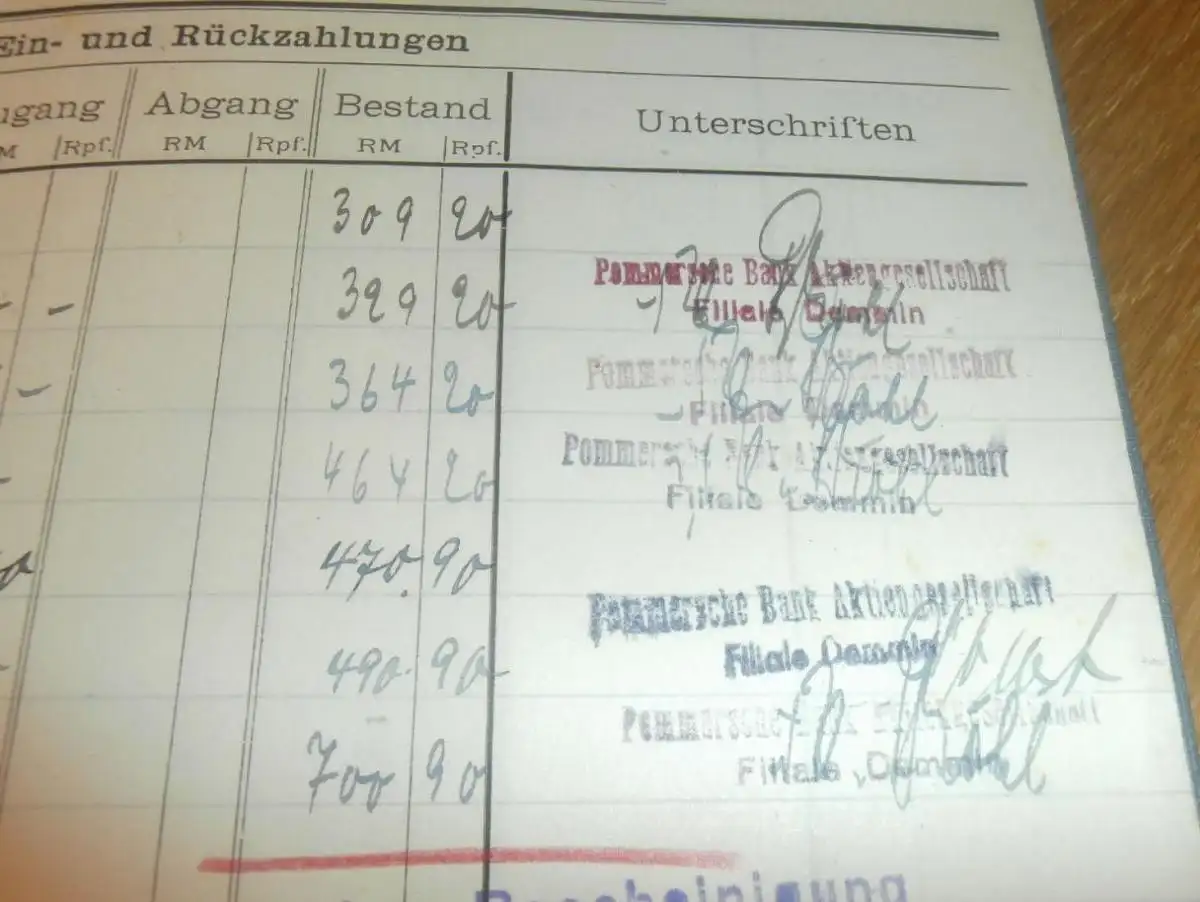 Ein- und Rückzahlungen
Abgang Bestand Unterschriften
Rpf. RM Rpf. RM Rpf.
309 20
Pommersche Bank Aktiengesellschaft
- 329 20
Filiale Demmin
Pommersche Bank Aktiengesellschaft
- 364 20
Filiale Demmin
Pommersche Bank Aktiengesellschaft
464 20
Filiale Demmin
470 90
Pommersche Bank Aktiengesellschaft
Filiale Demmin
490 90
Pommersche Bank Aktiengesellschaft
700 90
Filiale Demmin
Bescheinigung